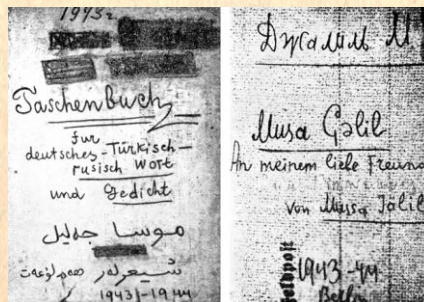 1943г.
Taschenbuch
fur
deutsches-Türkisch-
rusisch Wort
und Gedicht
موسا جەلیل
شیعرلەر
1943-1944
Джалиль М
Musa Gəlil
An meinem liebe Freund
von Mussa Jalil
1943-44